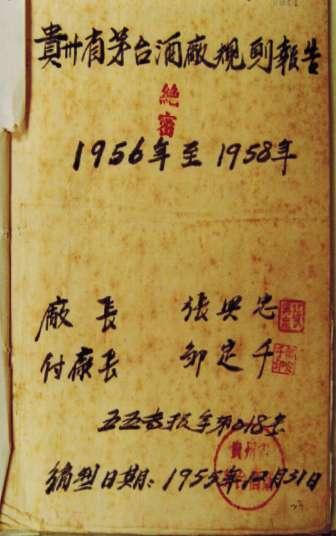 貴州省茅台酒廠規則報告
絶密
1956年至1958年
廠長 張興忠
付廠長 鄒定千
五五 字第018
编型日期：1955年12月31日
貴州